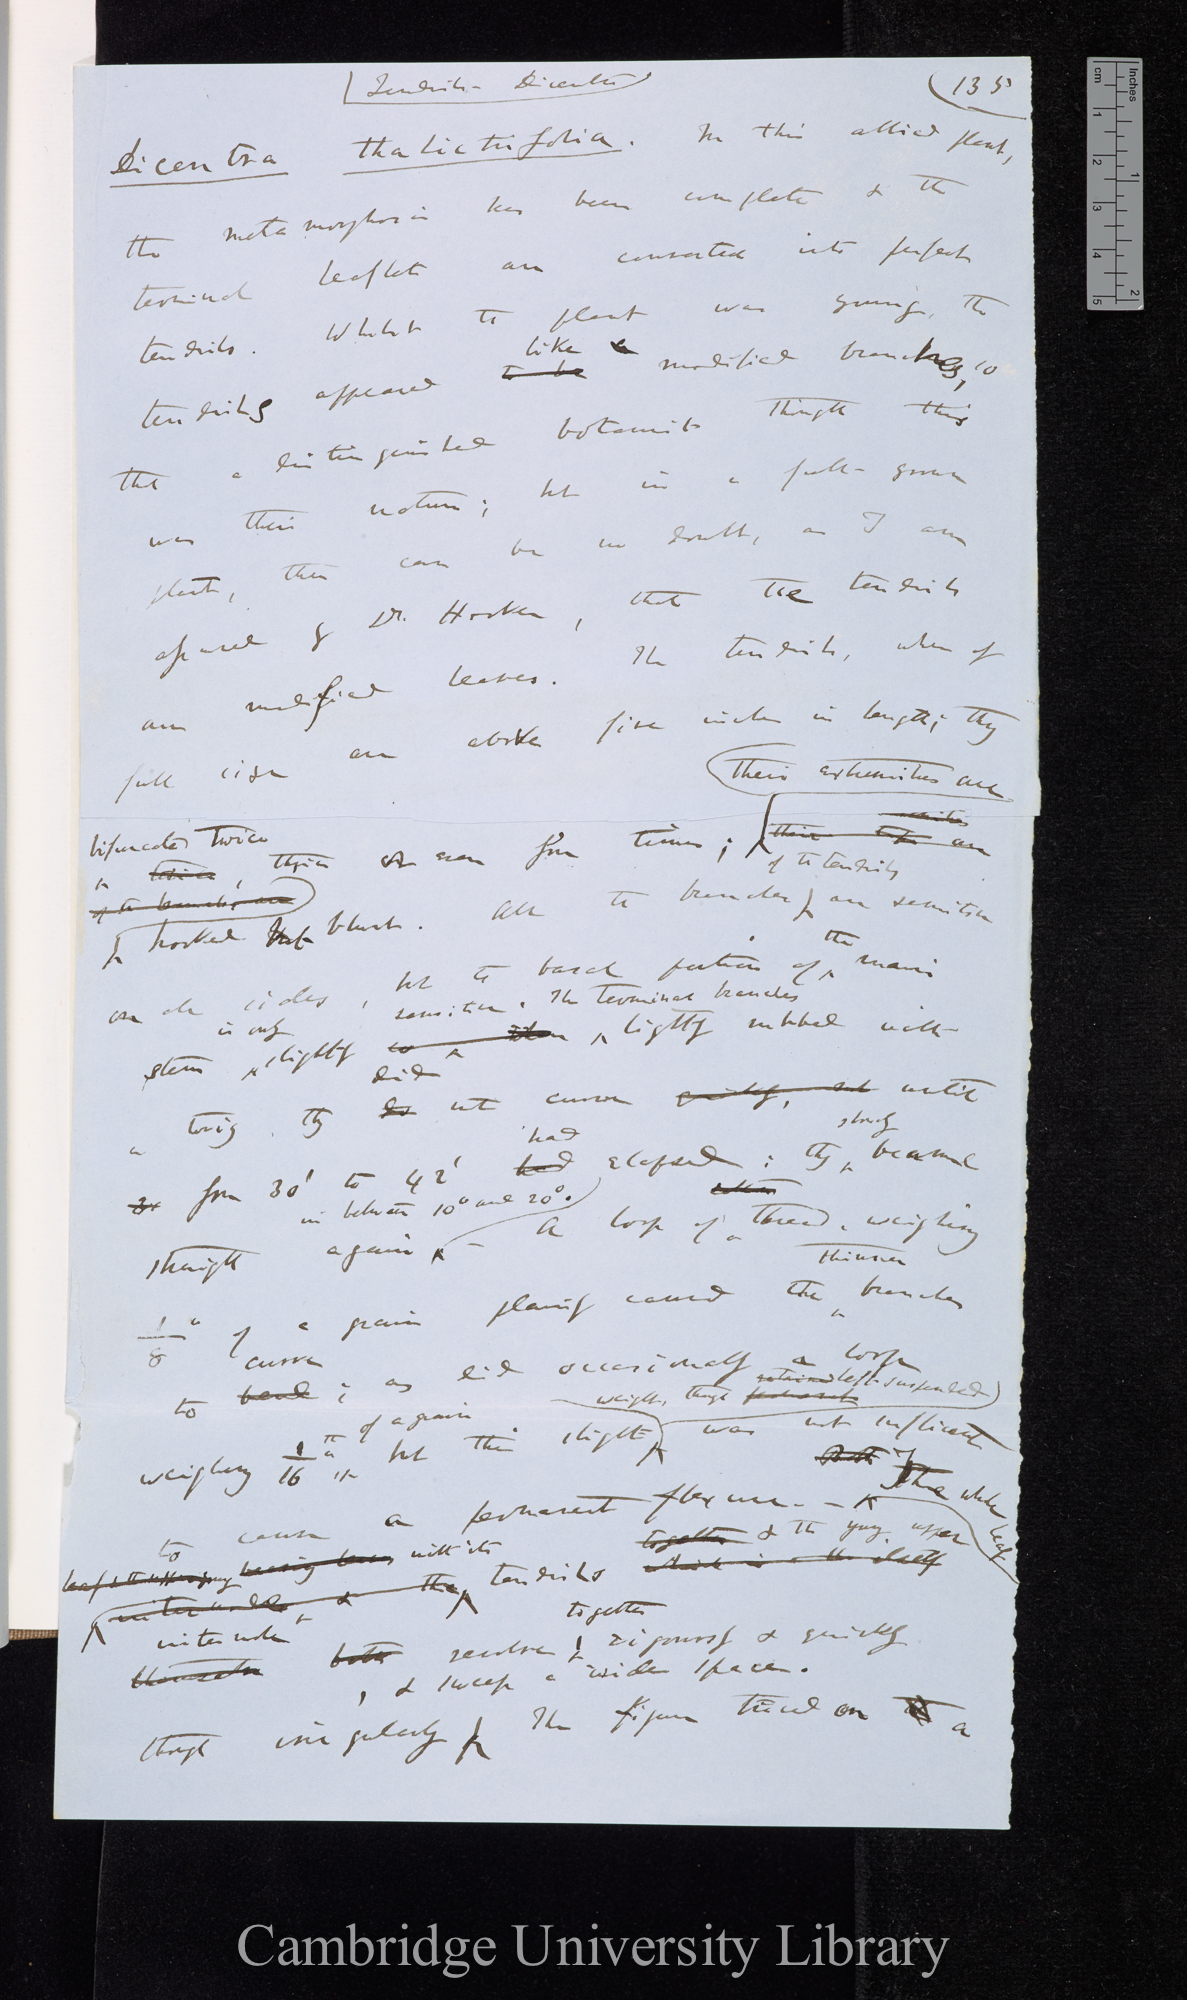 Tendrils – Dicentra
135
Dicentra thalictrifolia. In this allied plant,
the metamorphosis has been complete & the
terminal leaflets are converted into perfect
tendrils. Whilst the plant was young, the
like
tendrils appeared to be modified branches, so
that a distinguished botanist thought this
was their nature; but in a full-grown
plant, there can be no doubt, as I am
assured by Dr. Hooker, that the tendrils
are modified leaves. The tendrils, when of
full size are above five inches in length; they
their extremities are
bifurcates twice
thrice or even four times; their tips are
of the tendrils
of the branches are
hooked but blunt. All the branches are sensitive
on all sides, but the basal portion of the main
is only sensitive. The terminal branches
stem slightly so when lightly rubbed with
did
a twig, they do not curve quickly, not until
had slowly
from 30' to 42' had elapsed: they became
in between 10° and 20°.
straight again – A loop of thread, weighing
thinner
1/8th of a grain plainly caused the branches
curve
to bend; as did occasionally a loop
weight, though left suspended
of a grain
weighing 1/16th but this slight was not sufficient
to cause a permanent flexure. – The whole leaf
with its together & the young upper
internodes & the tendrils which is on the itself
internodes together
themselves both revolve vigorously & quickly
, & sweep a wide space.
though irregularly The figure traced on a
inches
1
2
cm
1
2
3
4
5
Cambridge University Library